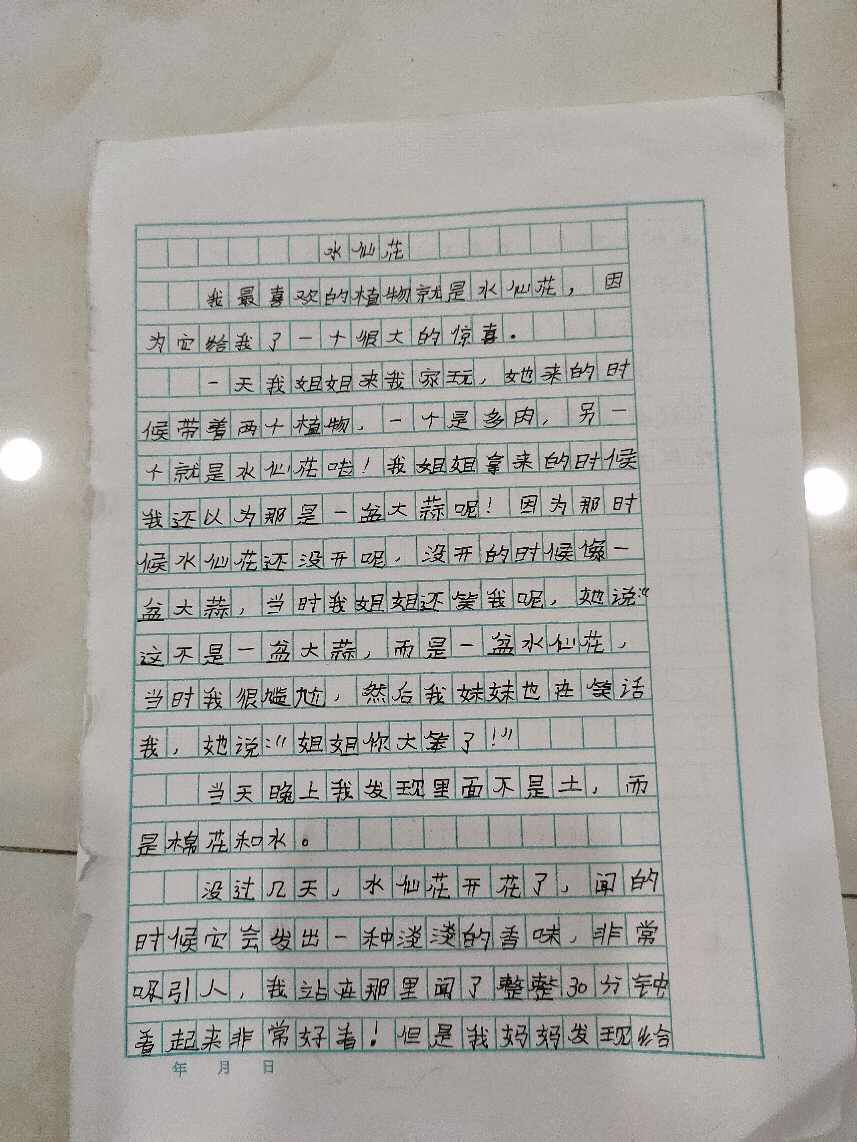 水仙花
我最喜欢的植物就是水仙花，因
为它给我了一个很大的惊喜。
一天我姐姐来我家玩，她来的时
候带着两个植物，一个是多肉，另一
个就是水仙花啦！我姐姐拿来的时候
我还以为那是一盆大蒜呢！因为那时
候水仙花还没开呢，没开的时候像一
盆大蒜，当时我姐姐还笑我呢，她说“
这不是一盆大蒜，而是一盆水仙花，
当时我很尴尬，然后我妹妹也在笑话
我，她说：“姐姐你大笨了！”
当天晚上我发现里面不是土，而
是棉花和水。
没过几天，水仙花开花了，闻的
时候它会发出一种淡淡的香味，非常
吸引人，我站在那里闻了整整30分钟
看起来非常好看！但是我妈妈发现给
年 月 日